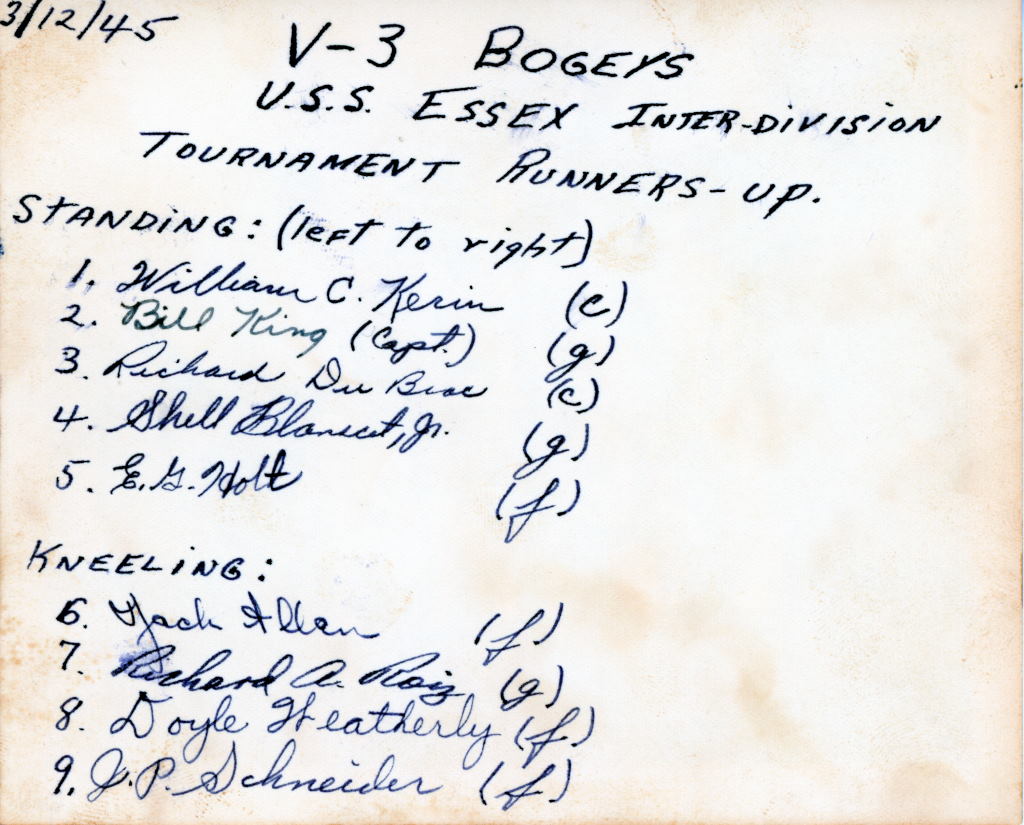 3/12/45
V-3 BOGEYS
U.S.S. ESSEX INTER-DIVISION
TOURNAMENT RUNNERS-UP.
STANDING: (left to right)
1. William C. Kerin (c)
2. Bill King (Capt.) (g)
3. Richard Du Broc (c)
4. Shell Blanscet, Jr. (g)
5. E.G. Holt (f)
KNEELING:
6. Jack Allan (f)
7. Richard A. Roiz (g)
8. Doyle Weatherly (f)
9. J.P. Schneider (f)